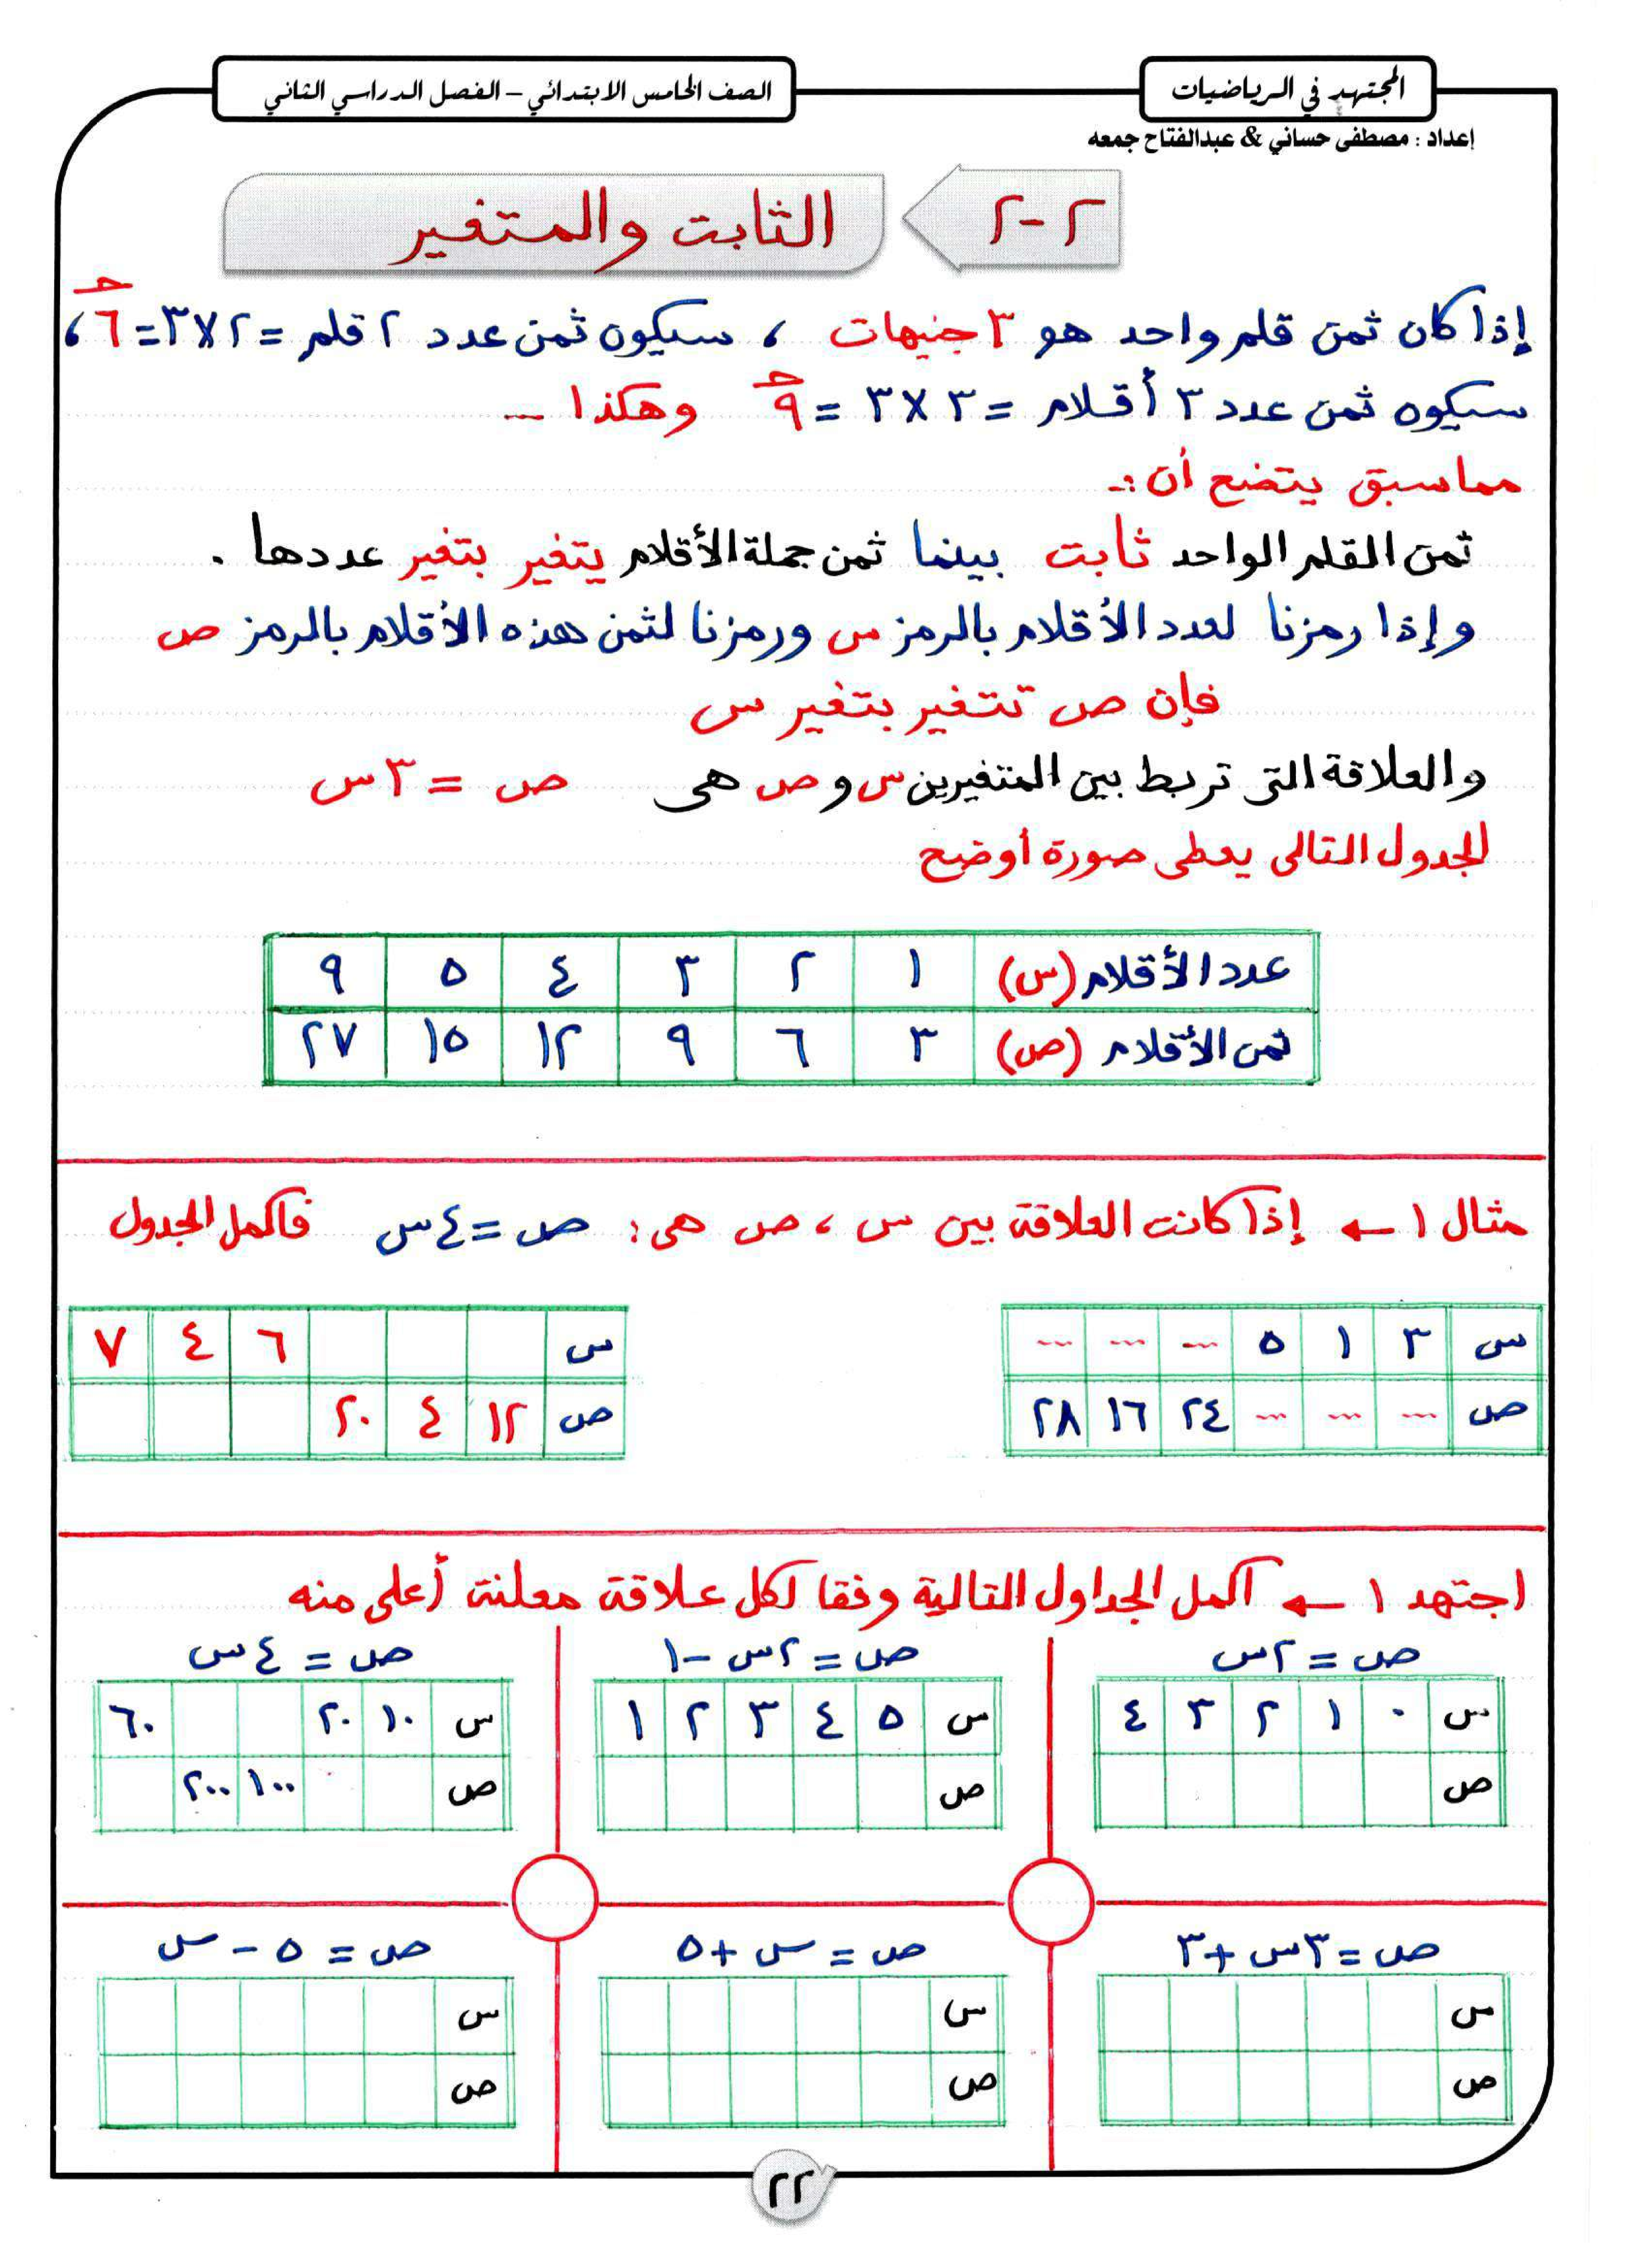 المجتهد في الرياضيات
الصف الخامس الابتدائي – الفصل الدراسي الثاني
إعداد : مصطفى حساني & عبدالفتاح جمعه
٢-٢ الثابت والمتغير
إذا كان ثمن قلم واحد هو ٣ جنيهات ، سيكون ثمن عدد ٢ قلم = ٢ × ٣ = ٦ جـ ،
سيكون ثمن عدد ٣ أقلام = ٣ × ٣ = ٩ جـ وهكذا ...
مما سبق يتضح أن :-
ثمن القلم الواحد ثابت بينما ثمن جملة الأقلام يتغير بتغير عددها .
وإذا رمزنا لعدد الأقلام بالرمز س ورمزنا لثمن هذه الأقلام بالرمز ص
فإن ص تتغير بتغير س
والعلاقة التى تربط بين المتغيرين س و ص هى ص = ٣س
الجدول التالى يعطى صورة أوضح
عدد الأقلام (س) ١ ٢ ٣ ٤ ٥ ٩
ثمن الأقلام (ص) ٣ ٦ ٩ ١٢ ١٥ ٢٧
مثال ١ ← إذا كانت العلاقة بين س ، ص هى : ص = ٤س فاكمل الجدول
س ٣ ١ ٥ ... ... ...
ص ... ... ... ٢٤ ١٦ ٢٨
س ٦ ٤ ٧
ص ١٢ ٤ ٢٠
اجتهد ١ ← أكمل الجداول التالية وفقا لكل علاقة معلنة أعلى منه
ص = ٢س
س ٠ ١ ٢ ٣ ٤
ص
ص = ٢س - ١
س ٥ ٤ ٣ ٢ ١
ص
ص = ٤س
س ١٠ ٢٠ ٦٠
ص ١٠٠ ٢٠٠
ص = ٣س + ٣
س
ص
ص = س + ٥
س
ص
ص = ٥ - س
س
ص
٢٢